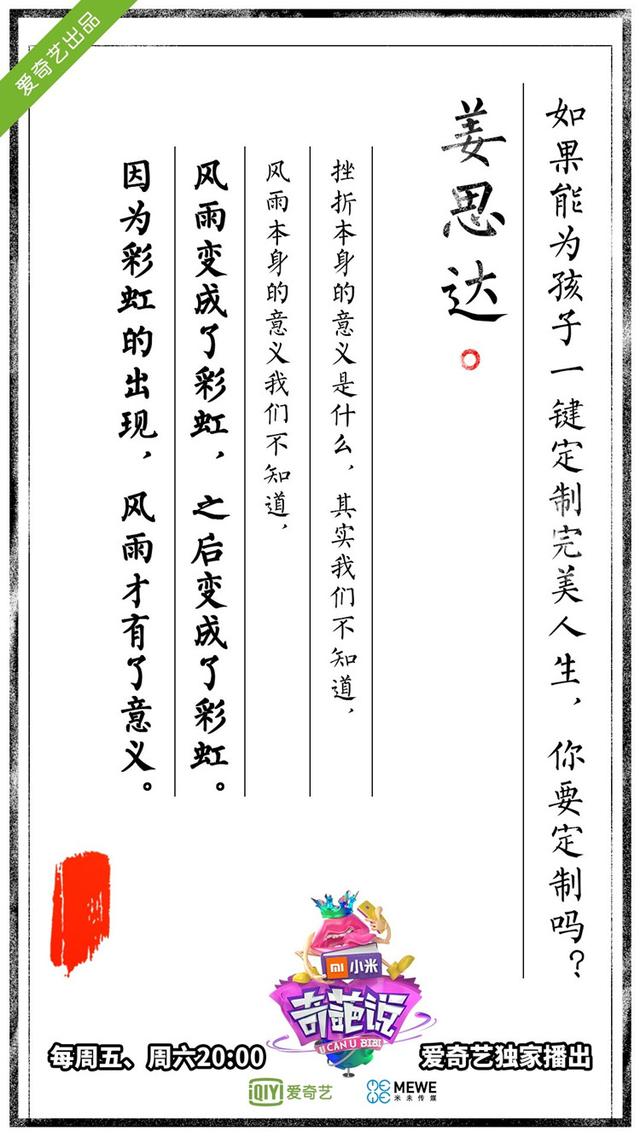 爱奇艺出品
如果能为孩子一键定制完美人生，你要定制吗？
姜思达
挫折本身的意义是什么，其实我们不知道，
风雨本身的意义我们不知道，
风雨变成了彩虹，之后变成了彩虹。
因为彩虹的出现，风雨才有了意义。
mi 小米
奇葩说
U CAN U BIBI
每周五、周六20:00
爱奇艺独家播出
iQIYI 爱奇艺
MEWE
米未传媒